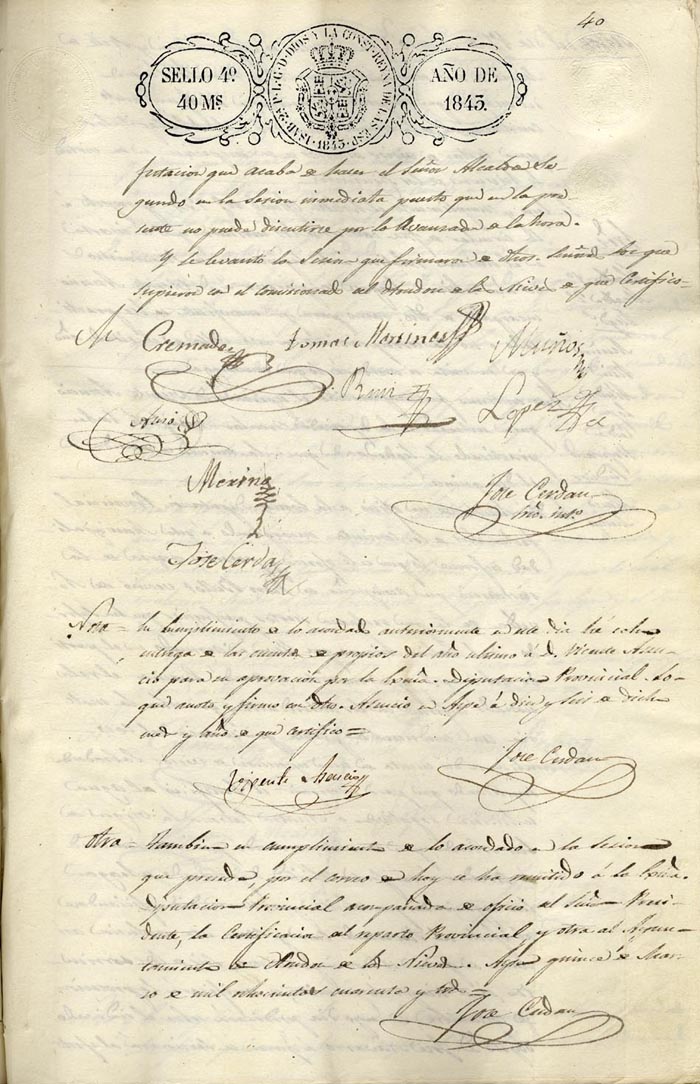 40
SELLO 4º
40 Ms
ISAB. 2ª P. L. G. D. DIOS Y LA CONST. REYNA DE LAS ESP. 1843.
AÑO DE
1843.
putacion que acaba de hacer el Señor Alcalde Se-
gundo en la Sesion inmediata puesto que en la pre-
sente no puede discutirse por lo Avanzada de la hora.
Y se levantó la Sesion que firmaron los que
supieron con el comisionado de la de que Certifico.
Cremades Tomas Martinez Muños
Ruiz Lopez
Asnº
Merino Jose Cerdan
Srio. intº
Jose Cerda
Nota = En Cumplimiento de lo acordado anteriormente en este dia hé
entrega de las cuentas de propios del año ultimo á D. Vicente Asen-
cio para su aprovacion por la Exma. Diputacion Provincial. Lo
que anoto y firmo con dho. Asencio en Aspe á diez y seis de dicho
mes y año de que certifico =
Vicente Asencio Jose Cerdan
Otra = Tambien en cumplimiento de lo acordado en la sesion
que precede, por el correo de hoy se ha remitido á la Exma.
Diputacion Provincial acompañada de oficio al Señor Presi-
dente, la Certificacion del reparto Provincial, y otra al Ayun-
tamiento de Hondon de las Nieves. Aspe quince de Mar-
zo de mil ochocientos cuarenta y tres =
Jose Cerdan